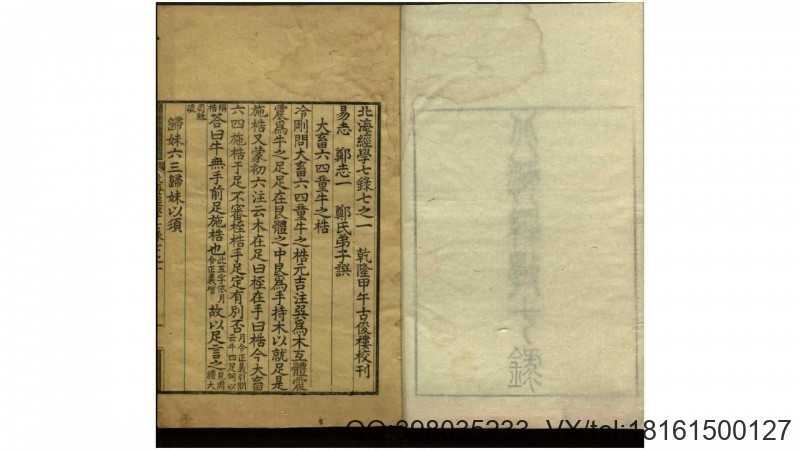 北海經學七錄七之一　乾隆甲午古俊樓校刊
易志　鄭志一　鄭氏弟子譔
大畜六四童牛之梏
冷剛問大畜六四童牛之梏元吉注巽爲木互體震
震爲牛之足足在艮體之中艮爲手持木以就足是
施梏又蒙初六注云木在足曰桎在手曰梏今大畜
六四施梏于足不審桎梏手足定有別否
答曰牛無手前足施梏也 故以足言之
歸妹六三歸妹以須
北海經學七錄
QQ:398035233 VX/tel:18161500127